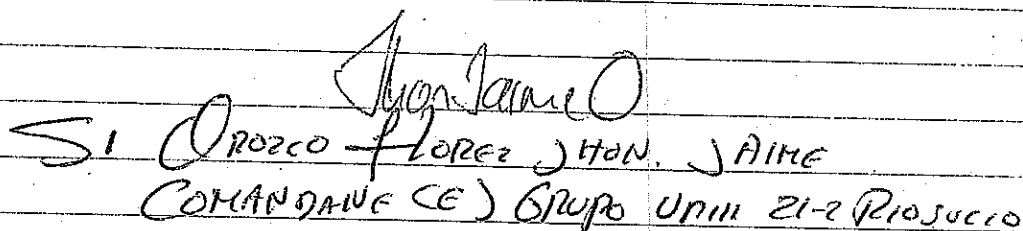 Jhon Jaime O
SI OROZCO FLOREZ JHON. JAIME
COMANDANE (E) GRUPO UNIII 21-2 RIOSUCIO